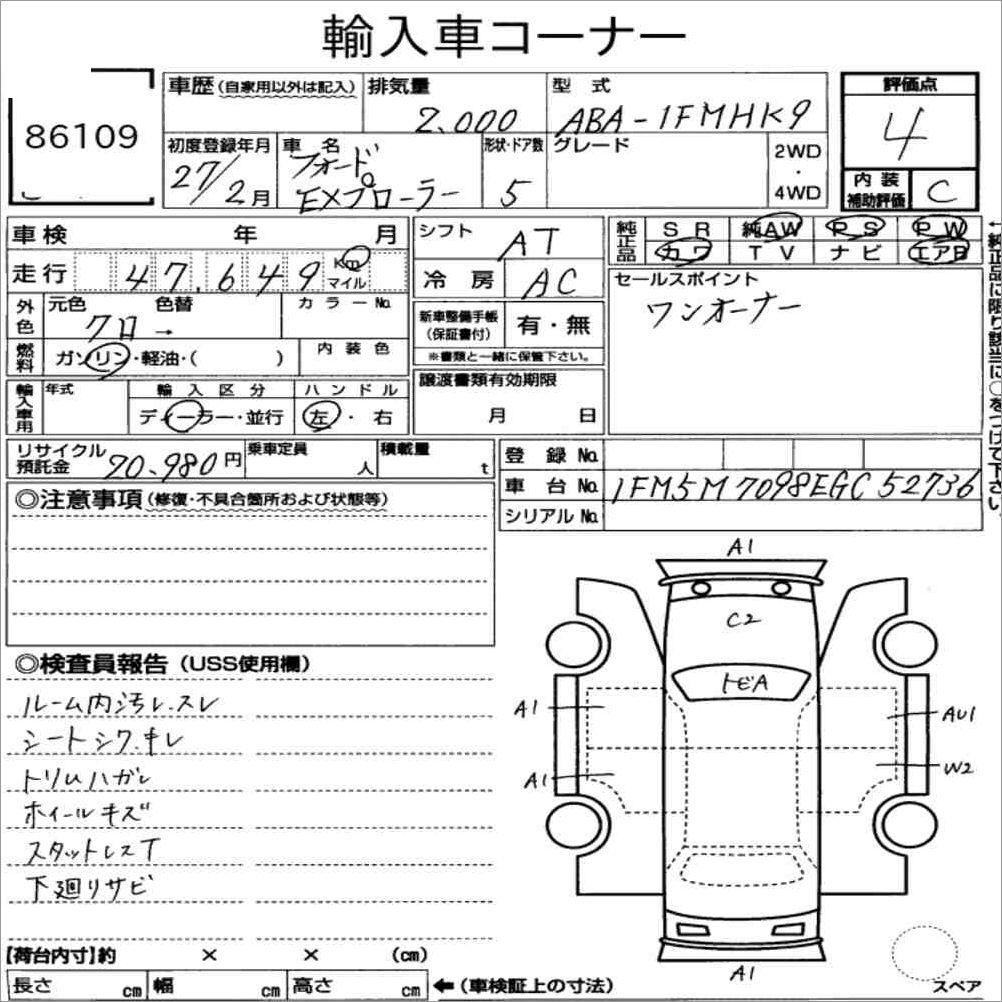 輸入車コーナー
86109
車歴(自家用以外は記入) 排気量 型式 評価点
2.000 ABA-1FMHK9 4
初度登録年月 車名 形状・ドア数 グレード 2WD・4WD
27/2月 フォード EXプローラー 5
内装補助評価 C
車検 年 月 シフト AT 純正品 SR 純AW PS PW
走行 47.649 Km マイル 冷房 AC カワ TV ナビ エアB
外色 元色 色替 カラーNo. 新車整備手帳(保証書付) 有・無 セールスポイント
クロ→ ※書類と一緒に保管下さい。 ワンオーナー
燃料 ガソリン・軽油・( ) 内装色
輸入車用 年式 輸入区分 ハンドル 譲渡書類有効期限
ディーラー・並行 左・右 月 日
←純正品に限り該当に○をつけて下さい。
リサイクル預託金 20.980円 乗車定員 人 積載量 t 登録No.
車台No. 1FM5M7098EGC52736
シリアルNo.
◎注意事項(修復・不具合箇所および状態等)
A1
C2
トビA
A1
AU1
A1
W2
A1
◎検査員報告(USS使用欄)
ルーム内汚レ.スレ
シートシワ.キレ
トリムハガレ
ホイールキズ
スタットレスT
下廻りサビ
【荷台内寸】約 × × (cm)
長さ cm 幅 cm 高さ cm ←(車検証上の寸法)
スペア